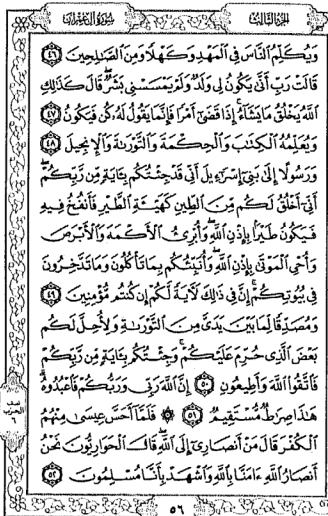 الجزء الثالث
سورة آل عمران
وَيُكَلِّمُ النَّاسَ فِي الْمَهْدِ وَكَهْلًا وَمِنَ الصَّالِحِينَ ﴿٤٦﴾
قَالَتْ رَبِّ أَنَّىٰ يَكُونُ لِي وَلَدٌ وَلَمْ يَمْسَسْنِي بَشَرٌ ۖ قَالَ كَذَٰلِكِ
اللَّهُ يَخْلُقُ مَا يَشَاءُ ۚ إِذَا قَضَىٰ أَمْرًا فَإِنَّمَا يَقُولُ لَهُ كُن فَيَكُونُ ﴿٤٧﴾
وَيُعَلِّمُهُ الْكِتَابَ وَالْحِكْمَةَ وَالتَّوْرَاةَ وَالْإِنجِيلَ ﴿٤٨﴾
وَرَسُولًا إِلَىٰ بَنِي إِسْرَائِيلَ أَنِّي قَدْ جِئْتُكُم بِآيَةٍ مِّن رَّبِّكُمْ ۖ
أَنِّي أَخْلُقُ لَكُم مِّنَ الطِّينِ كَهَيْئَةِ الطَّيْرِ فَأَنفُخُ فِيهِ
فَيَكُونُ طَيْرًا بِإِذْنِ اللَّهِ ۖ وَأُبْرِئُ الْأَكْمَهَ وَالْأَبْرَصَ
وَأُحْيِي الْمَوْتَىٰ بِإِذْنِ اللَّهِ ۖ وَأُنَبِّئُكُم بِمَا تَأْكُلُونَ وَمَا تَدَّخِرُونَ
فِي بُيُوتِكُمْ ۚ إِنَّ فِي ذَٰلِكَ لَآيَةً لَّكُمْ إِن كُنتُم مُّؤْمِنِينَ ﴿٤٩﴾
وَمُصَدِّقًا لِّمَا بَيْنَ يَدَيَّ مِنَ التَّوْرَاةِ وَلِأُحِلَّ لَكُم
بَعْضَ الَّذِي حُرِّمَ عَلَيْكُمْ ۚ وَجِئْتُكُم بِآيَةٍ مِّن رَّبِّكُمْ
فَاتَّقُوا اللَّهَ وَأَطِيعُونِ ﴿٥٠﴾ إِنَّ اللَّهَ رَبِّي وَرَبُّكُمْ فَاعْبُدُوهُ ۗ
هَٰذَا صِرَاطٌ مُّسْتَقِيمٌ ﴿٥١﴾ ۞ فَلَمَّا أَحَسَّ عِيسَىٰ مِنْهُمُ
الْكُفْرَ قَالَ مَنْ أَنصَارِي إِلَى اللَّهِ ۖ قَالَ الْحَوَارِيُّونَ نَحْنُ
أَنصَارُ اللَّهِ آمَنَّا بِاللَّهِ وَاشْهَدْ بِأَنَّا مُسْلِمُونَ ﴿٥٢﴾
٥٦